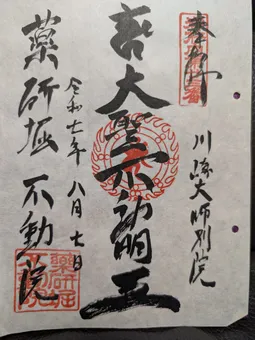 奉拝
川崎大師別院
大聖不動明王
令和七年八月七日
薬研堀 不動院